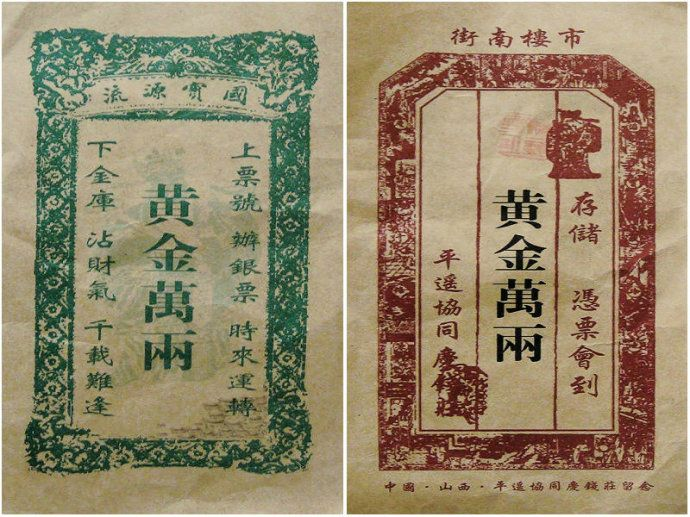 國寳源流
上票號 辦銀票 時來運轉
黄金萬兩
下金庫 沾財氣 千載難逢
市樓南街
存儲 憑票會到
黄金萬兩
平遥協同慶錢莊
中國·山西·平遥協同慶錢莊留念